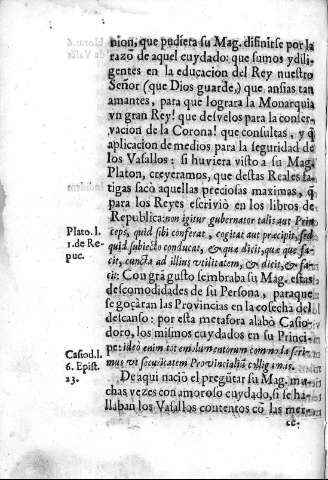 nion, que pudiera su Mag. difinirse por la
razõ de aquel cuydado: que sumos ydili-
gentes en la educacion del Rey nuestro
Señor (que Dios guarde,) que ansias tan
amantes, para que lograra la Monarquia
vn gran Rey! que desvelos para la conser-
vacion de la Corona! que consultas, y q̃
aplicacion de medios para la seguridad de
los Vasallos: si huviera visto a su Mag.
Platon, creyeramos, que destas Reales fa-
tigas sacò aquellas preciosas maximas, q̃
para los Reyes escriviò en los libros de
Republica: non igitur gubernator talis aut Prin
Plato. l. 1. de Re-puc.
ceps, quid sibi conferat, cogitat aut præcipit, sed
quid subiecto conducat, & quæ dicit, quæ que fa-
cit, cuncta ad illius vtilitatem, & dicit, & fa-
cit: Con grã gusto sembraba su Mag. estas
descomodidades de su Persona, paraque
se goçaran las Provincias en la cosecha del
descanso: por esta metafora alabò Casio-
doro, los mismos cuydados en su Princi-
pe: ideò enim tot emolumentorum
Casiod. l. 6. Epist. 23.
mus vt securitatem Provincialiũ colligamas.
De aqui naciò el pregũtar su Mag. mu-
chas vezes con amoroso cuydado, si se ha-
llaban los Vasallos contentos cõ las mer-
ce.